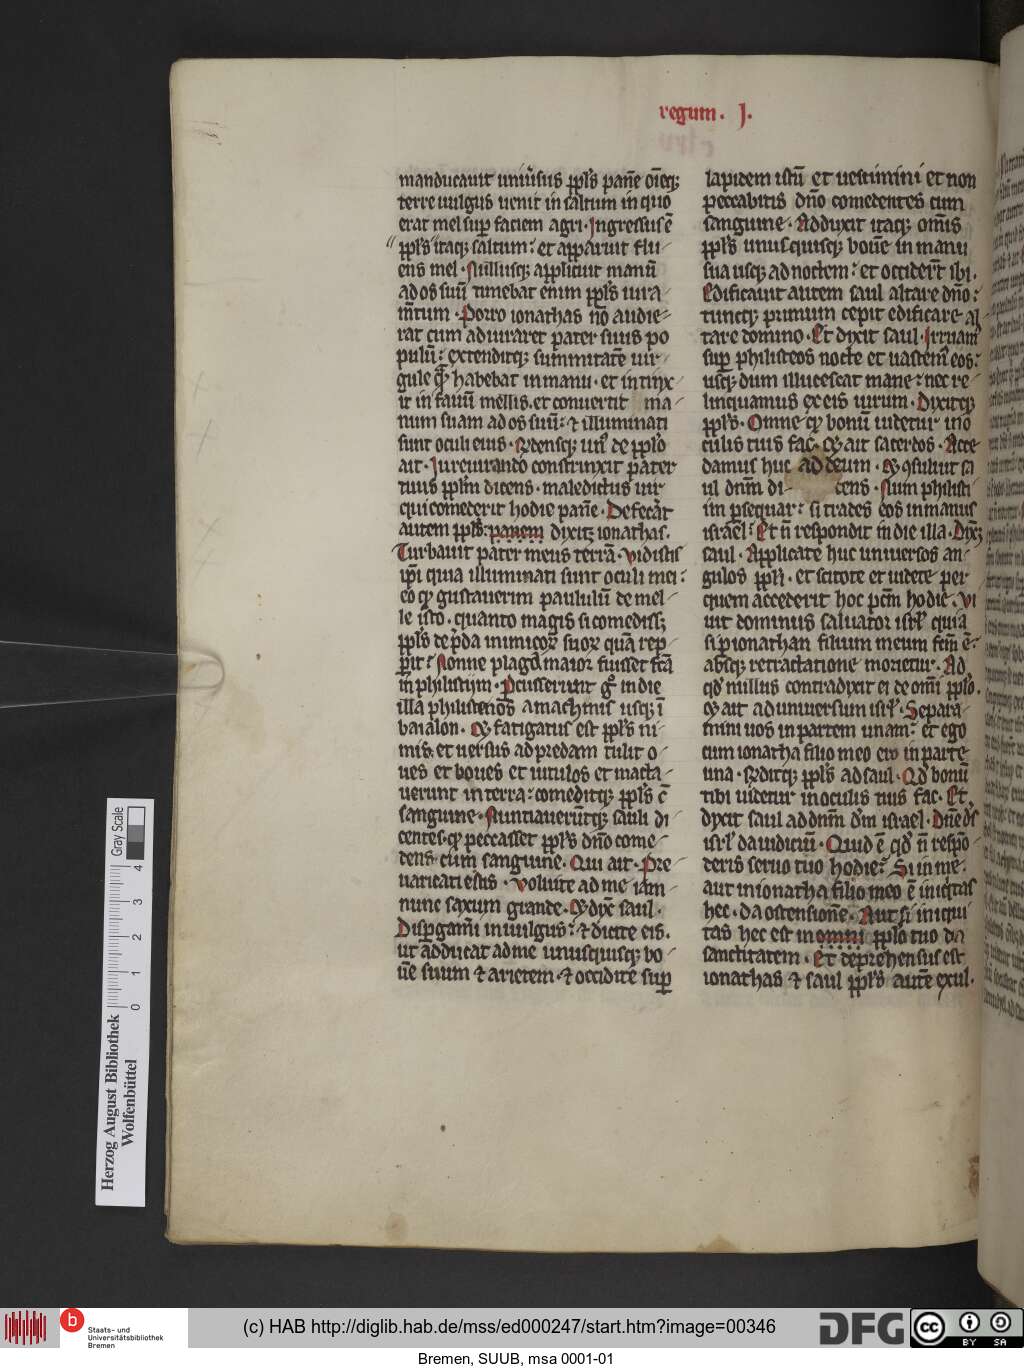 regum. I.
manducauit uniũsus ppl̃s pane̅ oi̅eqꝫ
terre uulgus uenit in saltum in quo
erat mel suꝑ faciem agri. Ingressus ẽ
ppl̃s itaqꝫ saltum: et apparuit flu-
ens mel. Nullusqꝫ applicuit manu̅
ad os suu̅ timebat enim ppl̃s iura-
m̃tum. Porro ionathas no̅ audie-
rat cum adiuraret pater suus po
pulu̅: extenditqꝫ summitate̅ uir-
gule qm̃ habebat in manu. et intinx-
it in fauu̅ mellis. et conuertit ma-
num suam ad os suu̅: ⁊ illuminati
sunt oculi eius. Rñdensqꝫ un̾ de pplo̅
ait. Iureiurando constrinxit pater
tuus pplm̃ dicens. maledictus uir
qui comederit hodie pane̅. Defecãt
autem ppl̃s. panem dixitqꝫ ionathas.
Turbauit pater meus terra̅. vidistis
ip̃i quia illuminati sunt oculi mei:
eo qꝫ gustauerim paululu̅ de mel-
le isto. quanto magis si comedissꝫ
ppl̃s de p̃da inimicoꝝ suoꝝ qua̅ rep-
perit: Nonne plaga maior fuisset fc̃a
in philistijm. Pcusserunt gͦ in die
illa philistenos a machmis usqꝫ i̅
baialon. Qꝫ fatigatus est ppl̃s ni-
mis. et uersus ad predam tulit o-
ues et boues et uitulos et macta-
uerunt in terra: comeditqꝫ ppl̃s cu̅
sanguine. Nuntiaueru̅tqꝫ sauli di
centes. qꝫ peccasset ppl̃s dño come-
dens cum sanguine. Qui ait. Pre-
uaricati estis. Voluite ad me iam-
nunc saxum grande. Et dix̃ saul.
Dispergam̃i in uulgus: ⁊ dicite eis.
ut adducat ad me unusquisqꝫ bo-
ue̅ suum ⁊ arietem. ⁊ occidite suꝑ
lapidem istu̅ et uestimini et non
peccabitis dño comedentes cum
sanguine. Adduxit itaqꝫ om̃is
ppl̃s unusquisqꝫ boue̅ in manu
sua usqꝫ ad noctem: et occider̃t ibi.
Edificauit autem saul altare dño:
tuncqꝫ primum cepit edificare al
tare domino. Et dixit saul. Irruam̾
suꝑ philisteos nocte et uastem̾ eos:
usqꝫ dum illucescat mane: nec re-
linquamus ex eis uirum. Dixitqꝫ
ppl̃s. Omne qꝫ bonu̅ uidetur in o
culis tuis fac. Et ait sacerdos. Acce
damus huc ad deum. Et ꝯsuluit sa
ul dnm̃ di- cens. Num philisti
im ꝑsequar: si trades eos in manus
israel: Et n̅ respondit in die illa. Dixitqꝫ
saul. Applicate huc uniuersos an-
gulos ppli. et scitote et uidete per
quem acciderit hoc pcm̃ hodie. Vi
uit dominus saluator isrl̃ quia
si ꝑ ionathan filium meum fcm̃ e̅:
absqꝫ retractatione morietur. Ad
qd̾ nullus contradixit ei de om̃i pplo̅.
Et ait ad uniuersum isrl̃. Separa-
mini uos in partem unam: et ego
cum ionatha filio meo ero in parte
una. Rñditqꝫ ppl̃s ad saul. Qd̾ bonu̅
tibi uidetur in oculis tuis fac. Et
dixit saul ad dnm̃ dm̃ israel. Dñe ds̃
isrl̃ da iudiciu̅. Quid ẽ qd̾ n̅ respo̅-
deris seruo tuo hodie: Si in me-
aut in ionatha filio meo ẽ iniq̾tas
hec. da ostensione̅. Aut si iniqui
tas hec est in omni pplo̅ tuo da
sanctitatem. Et deprehensus est
ionathas ⁊ saul ppl̃s aute̅ exiui.
Gray Scale
0 1 2 3 4
Herzog August Bibliothek
Wolfenbüttel
b
Staats- und
Universitätsbibliothek
Bremen
(c) HAB http://diglib.hab.de/mss/ed000247/start.htm?image=00346
DFG
cc BY SA
Bremen, SUUB, msa 0001-01